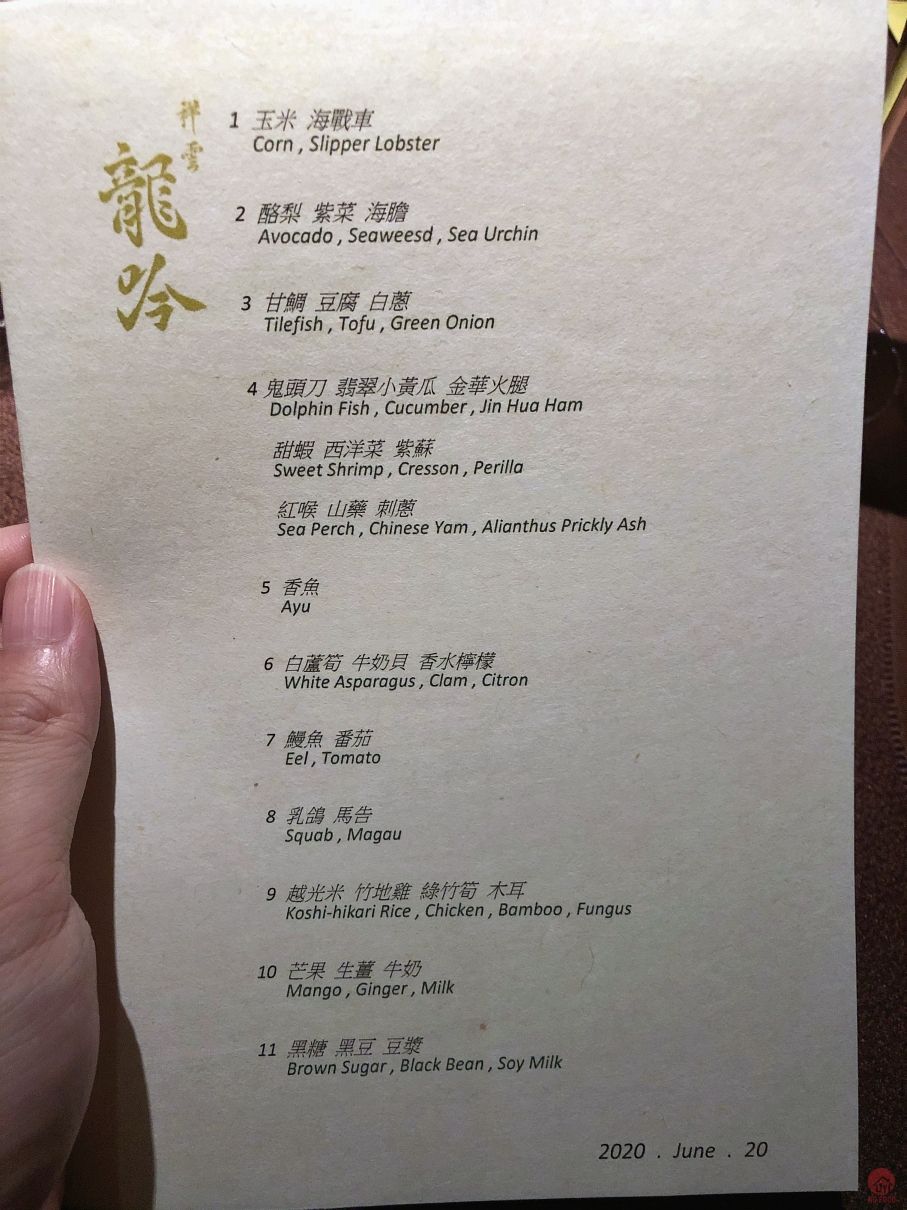 祥雲
龍吟
1 玉米 海戰車
Corn , Slipper Lobster
2 酪梨 紫菜 海膽
Avocado , Seaweesd , Sea Urchin
3 甘鯛 豆腐 白蔥
Tilefish , Tofu , Green Onion
4 鬼頭刀 翡翠小黃瓜 金華火腿
Dolphin Fish , Cucumber , Jin Hua Ham
甜蝦 西洋菜 紫蘇
Sweet Shrimp , Cresson , Perilla
紅喉 山藥 刺蔥
Sea Perch , Chinese Yam , Alianthus Prickly Ash
5 香魚
Ayu
6 白蘆筍 牛奶貝 香水檸檬
White Asparagus , Clam , Citron
7 鰻魚 番茄
Eel , Tomato
8 乳鴿 馬告
Squab , Magau
9 越光米 竹地雞 綠竹筍 木耳
Koshi-hikari Rice , Chicken , Bamboo , Fungus
10 芒果 生薑 牛奶
Mango , Ginger , Milk
11 黑糖 黑豆 豆漿
Brown Sugar , Black Bean , Soy Milk
2020 . June . 20